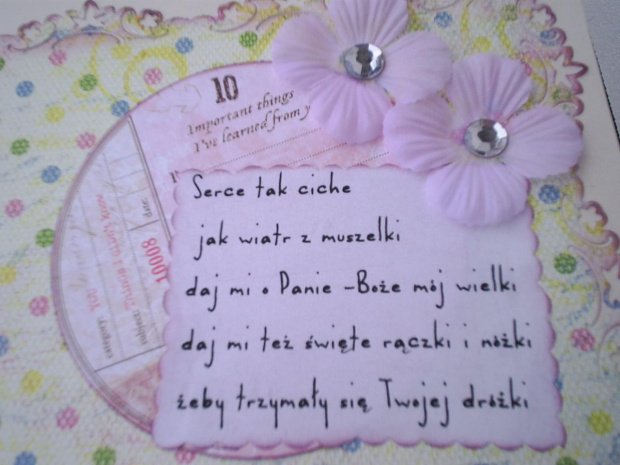 10
Important things
I've learned from y
Serce tak ciche
jak wiatr z muszelki
daj mi o Panie - Boże mój wielki
daj mi też święte rączki i nóżki
żeby trzymały się Twojej dróżki
date:
10008
subject:
category: